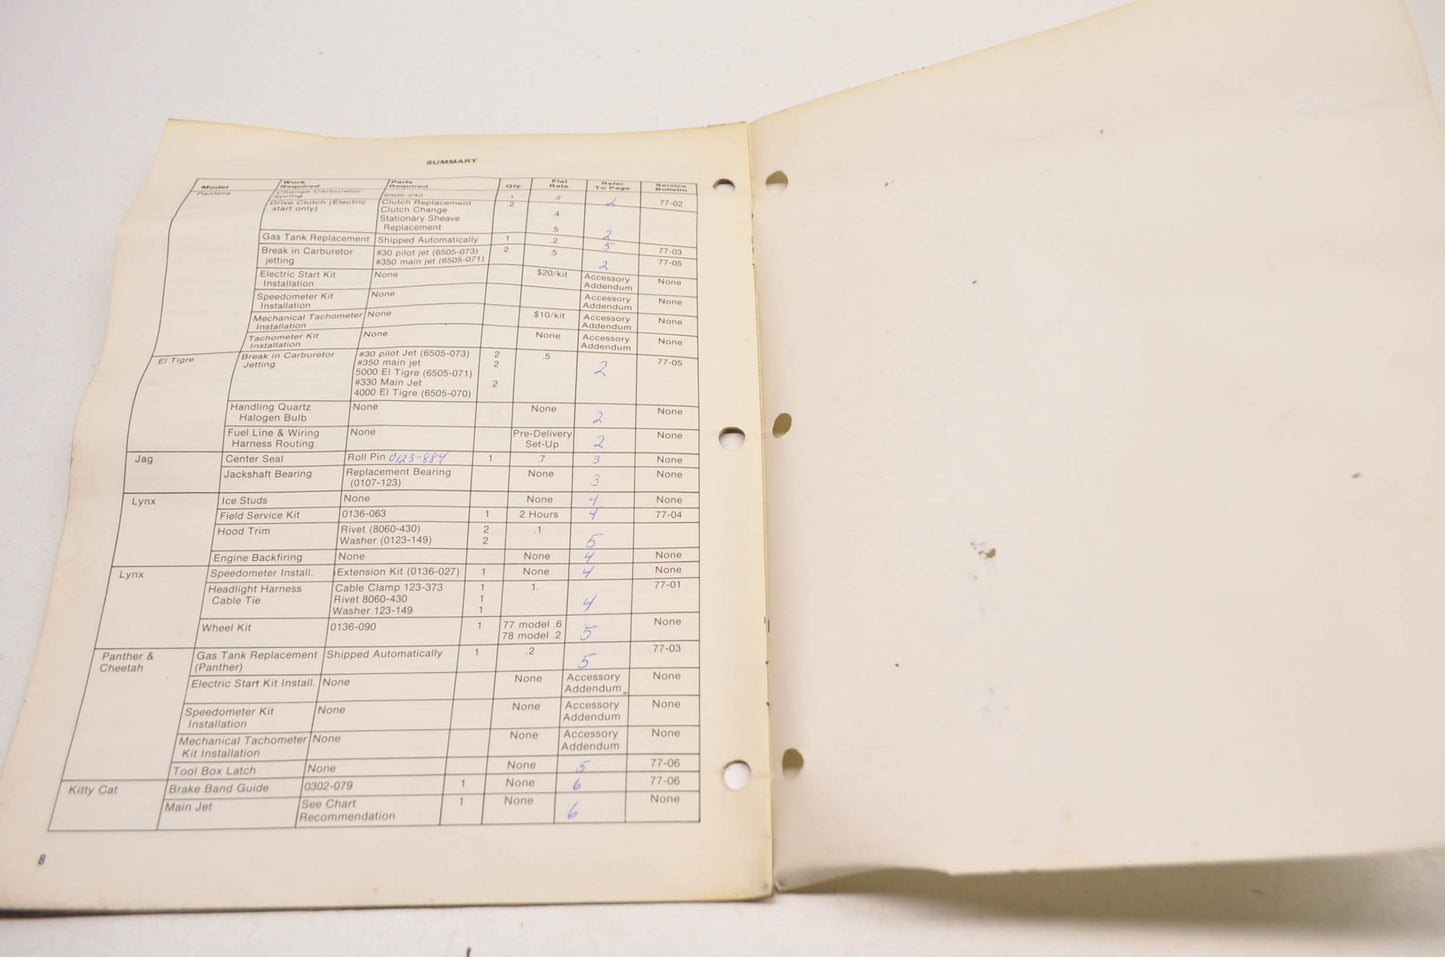 SUMMARY
Model Work Required Parts Required Qty. Flat Rate Refer To Page Service Bulletin
Pantera Change Carburetor Spring 6505-242 1 .2
Drive Clutch (Electric start only) Clutch Replacement 2 2 77-02
Clutch Change .4
Stationary Sheave
Replacement .5
Gas Tank Replacement Shipped Automatically 1 .2 2
5 77-03
Break in Carburetor #30 pilot jet (6505-073) 2 .5
jetting #350 main jet (6505-071) 2 77-05
Electric Start Kit None $20/kit Accessory None
Installation Addendum
Speedometer Kit None Accessory None
Installation Addendum
Mechanical Tachometer None $10/kit Accessory None
Installation Addendum
Tachometer Kit None None Accessory None
Installation Addendum
El Tigre Break in Carburetor #30 pilot Jet (6505-073) 2 .5 77-05
Jetting #350 main jet 2 2
5000 El Tigre (6505-071)
#330 Main Jet 2
4000 El Tigre (6505-070)
Handling Quartz None None None
Halogen Bulb 2
Fuel Line & Wiring None Pre-Delivery None
Harness Routing Set-Up 2
Jag Center Seal Roll Pin 0123-884 1 .7 3 None
Jackshaft Bearing Replacement Bearing None None
(0107-123) 3
Lynx Ice Studs None None 4 None
Field Service Kit 0136-063 1 2 Hours 4 77-04
Hood Trim Rivet (8060-430) 2 .1
Washer (0123-149) 2 5
Engine Backfiring None None 4 None
Lynx Speedometer Install. Extension Kit (0136-027) 1 None 4 None
Headlight Harness Cable Clamp 123-373 1 1. 77-01
Cable Tie Rivet 8060-430 1 4
Washer 123-149 1
Wheel Kit 0136-090 1 77 model .6 None
78 model .2 5
Panther & Gas Tank Replacement Shipped Automatically 1 .2 77-03
Cheetah (Panther) 5
Electric Start Kit Install. None None Accessory None
Addendum
Speedometer Kit None None Accessory None
Installation Addendum
Mechanical Tachometer None None Accessory None
Kit Installation Addendum
Tool Box Latch None None 5 77-06
Kitty Cat Brake Band Guide 0302-079 1 None 6 77-06
Main Jet See Chart 1 None None
Recommendation 6
8